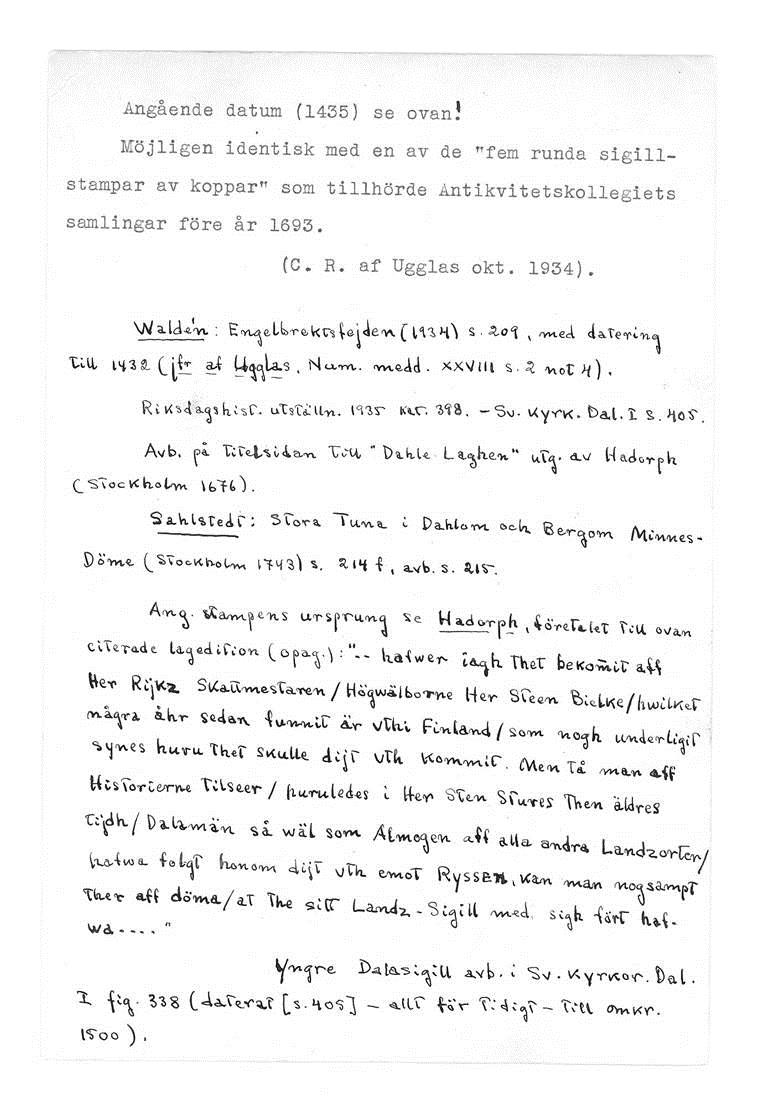 Angående datum (1435) se ovan!
Möjligen identisk med en av de "fem runda sigill-
stampar av koppar" som tillhörde Antikvitetskollegiets
samlingar före år 1693.
(C. R. af Ugglas okt. 1934).
Waldén: Engelbrektsfejden (1934) s. 209, med datering
till 1432 (jfr af Ugglas, Num. medd. XXVIII s. 2 not 4).
Riksdagshist. utställn. 1935 kat. 398. – Sv. Kyrk. Dal. I s. 405.
Avb. på titelsidan till "Dahle Laghen" utg. av Hadorph
(Stockholm 1676).
Sahlstedt: Stora Tuna i Dahlom och Bergom Minnes-
Döme (Stockholm 1743) s. 214 f, avb. s. 215.
Ang. stampens ursprung se Hadorph, företalet till ovan
citerade lagedition (opag.): "-- hafwer iagh thet bekomit aff
Her Rijkz Skattmestaren / Högwälborne Her Steen Bielke / hwilket
några åhr sedan funnit är vthi Finland / som nogh underligit
synes huru thet skulle dijt vth kommit. Men tå man aff
Historierne tilseer / huruledes i Her Sten Stures then äldres
tijdh / Dalamän så wäl som Almogen aff alla andra Landzorter/
hafwa folgt honom dijt vth emot Ryssen, kan man nogsampt
ther aff döma / at the sitt Landz-Sigill med sigh fört haf-
wa ---- "
Yngre Dalasigill avb. i Sv. Kyrkor. Dal.
I fig. 338 (daterat [s. 405] – allt för tidigt – till omkr.
1500).